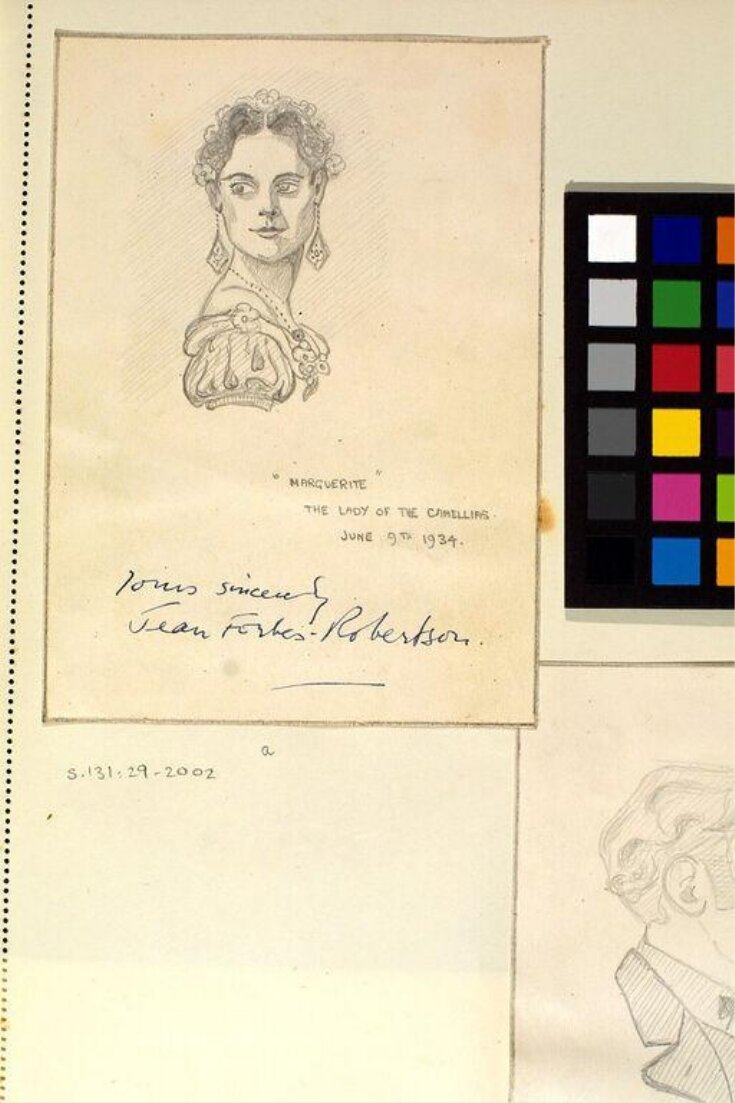 " MARGUERITE "
THE LADY OF THE CAMELLIAS.
JUNE 9TH 1934.
Yours sincerely
Jean Forbes-Robertson.
a
S.131:29-2002